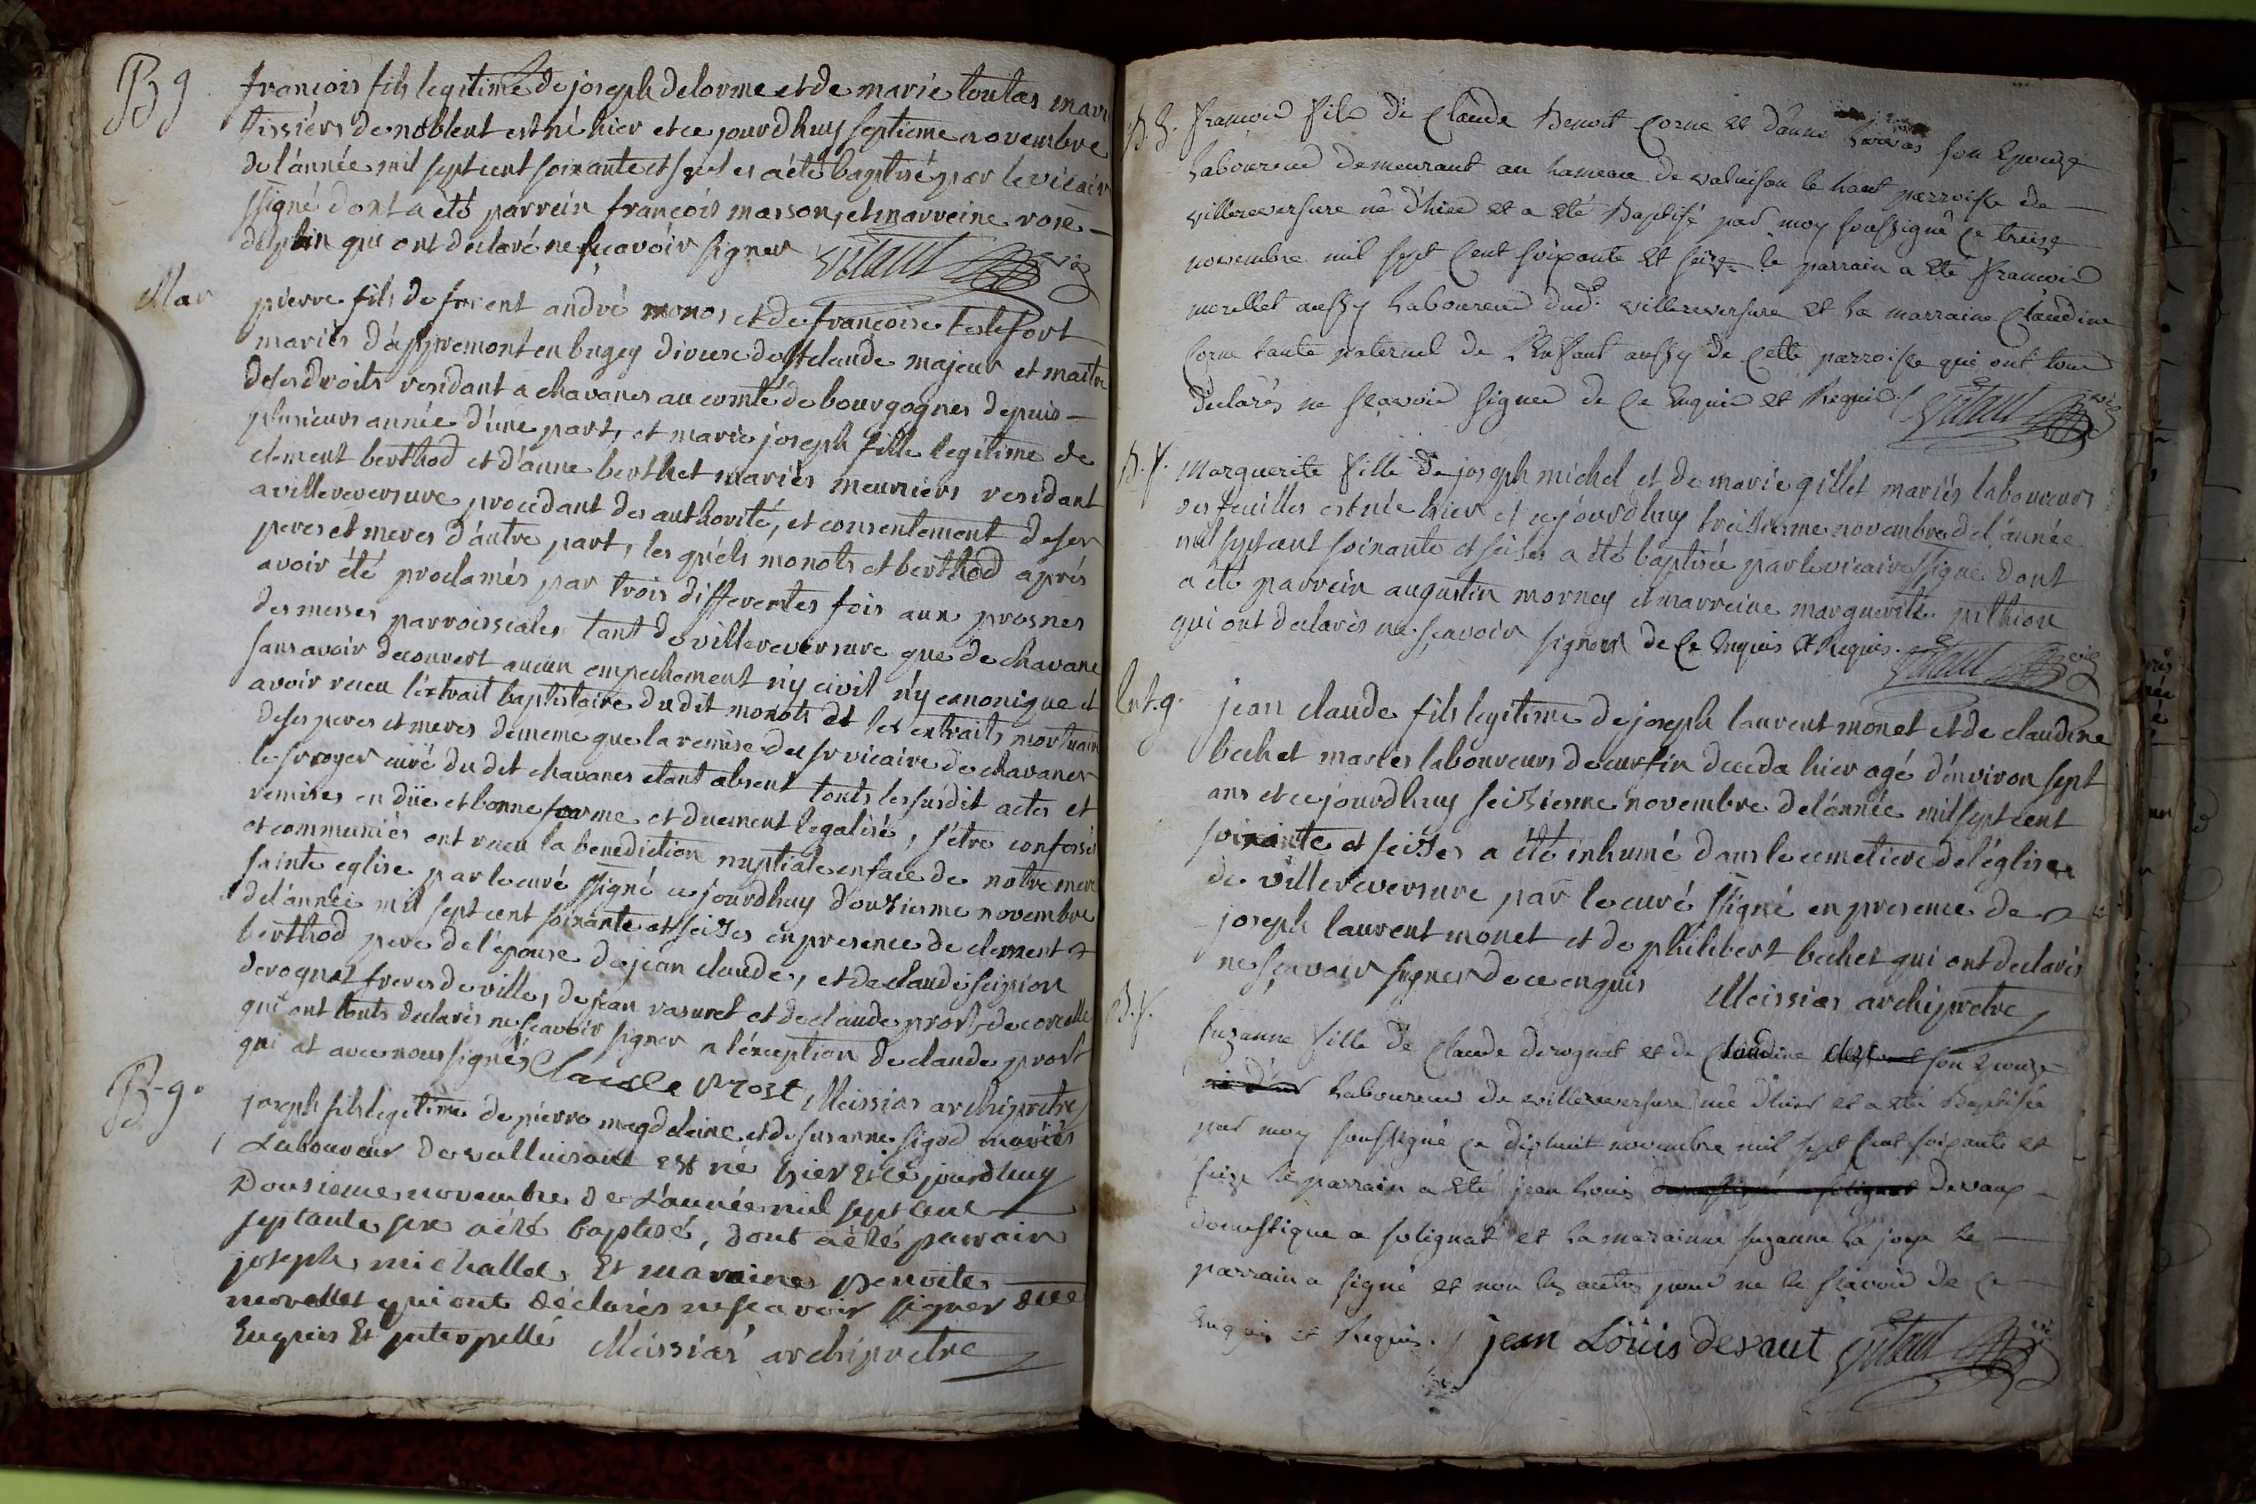 B g
françois fils legitime de joseph delorme et de marie toutas mari
tissiérs de noblent est né hier et ce jourd huy septieme novembre
de l'année mil sept cent soixante et seizes a été baptisé par le vicair
ssigné dont a été parrein françois masson, et marreine rose
delphin qui ont declaré ne sçavoir signer Vitaut vic
Mar
pierre fils de forent andré monos et de françoise tertefort
mariés d'appremont en bugey diocese de st claude majeur et maitre
de ses droits residant a chavanes au comté de bourgognes depuis
plusieurs année d'une part, et marie joseph fille legitime de
clement berthod et d'anne berthet mariés meuniers residant
a villereversure procedant des authorité, et consentement de ses
peres et meres d'autre part, les quéls monots et berthod aprés
avoir été proclamés par trois differentes fois aux prosnes
des messes parroissiales tant de villereversure que de chavane
sans avoir decouvert aucun empechement n'y civil n'y canonique et
avoir receu l'extrait baptistaire du dit monots et les extraits mortuair
de ses peres et meres de meme que la remise du sr vicaire de chavanes
le sr royer curé du dit chavanes etant absent touts les susdit actes et
remises en düe et bonne forme et duement legalisé, s'etre confessés
et communiés ont receu la benediction nuptiale en face de notre mere
sainte eglise par le curé ssigné ce jourdhuy douzieme novembre
de l'année mil sept cent soixante et seizes en presence de clement
berthod pere de l'epouse de jean claude, et de claude scipion
derognat freres de ville, de jean vasuret et de claude prost de corcelle
qui ont touts declarés ne sçavoir signer a l'éxception de claude prost
qui at avec nous signés Claude Prost Meissias archipretre
B-g.
joseph fils legitime de pierre magdeleine et de susanne sigod mariés
Laboureur de valluisant Est né hier Et ce jourdhuy
Dousieme novembre de L'année mil sept cent
septante six a été baptisé, dont a été parrain
joseph michallet Et maraine benoite
morellet qui ont déclarés ne sçavoir signer dee
Enquis Et interpellés Meissias archipretre
B. g.
François Fils de Claude Benoit Corne et d'anne son Epouse
Laboureur demeurant au hameau de valuison le haut parroisse de
villereversure né d'hier et a eté Baptisé par moy soussigné ce treize
novembre mil sept Cent soixante Et seize le parrain a eté François
morellet aussy Laboureur dud. villereversure Et La marraine Claudine
Corne tante paternel de L'Enfant aussy de Cette parroisse qui ont tous
déclarés ne sçavoir signer de Ce Enquis et Requis. Vitaut vic
B. f.
Marguerite fille de joseph michel et de marie gillet mariés laboureurs
des feuilles est née hier et ce jourdhuy treizieme novembre de l'année
mil sept cent soixante et seizes a été baptisée par le vicaire ssigné dont
a été parrein augustin morney et marreine marguerite pithion
qui ont declarés ne sçavoir signer de Ce Enquis Et Requis. Vitaut vic
Ent. g.
jean claude fils legitime de joseph laurent monet et de claudine
bechet mariés laboureurs de curtin deceda hier agé d'environ sept
ans et ce jourdhuy seizieme novembre de l'année mil sept cent
soixante et seizes a été inhumé dans le cemetiere de l'église
de villereversure par le curé ssigné en presence de
joseph laurent monet et de philibert bechet qui ont declarés
ne sçavoir signer de ce enquis Meissias archipretre
B. f.
Suzanne fille de Claude derognat et de Claudine son Epouse
Laboureur de villereversure née d'hier et a eté Baptisée
par moy soussigné ce dixhuit novembre mil sept Cent soixante et
seize le parrain a eté jean Louis devaux
domestique a solignat et La marainne suzanne La joye le
parrain a signé et non les autres pour ne le sçavoir de ce
Enquis et Requis. jean Louis devaut Vitaut vic